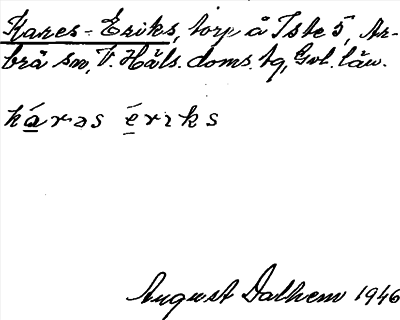 Kares-Eriks, torp å Iste 5, Ar-
brå sn, V. Häls. doms. tg, Gvl. län.
káras ériks
August Dalhem 1946